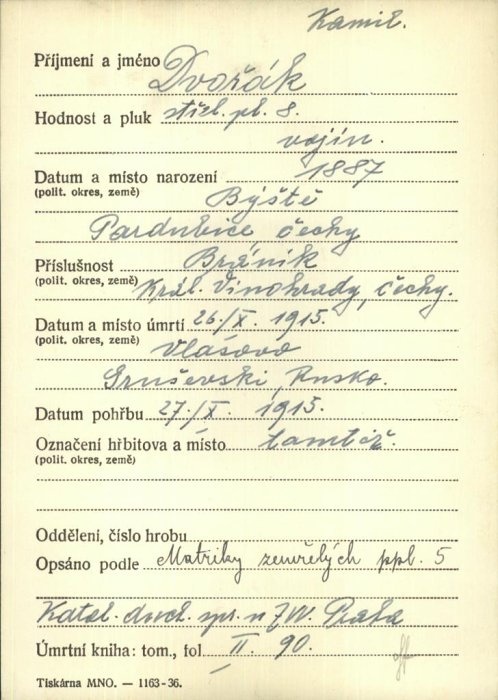 Kamil.
Příjmení a jméno Dvořák
Hodnost a pluk střel. pl. 8.
vojín.
Datum a místo narození 1887
(polit. okres, země) Býště
Pardubice čechy
Příslušnost Bráník
(polit. okres, země) Král. Vinohrady, čechy.
Datum a místo úmrtí 26./X. 1915.
(polit. okres, země) Vlásovo
Gruševski, Rusko.
Datum pohřbu 27./X. 1915.
Označení hřbitova a místo tamtéž.
(polit. okres, země)
Oddělení, číslo hrobu
Opsáno podle Matriky zemřelých ppl. 5
Katol. duch. spr. n ZW. Praha
Úmrtní kniha: tom., fol II. 90.
Tiskárna MNO. — 1163-36.